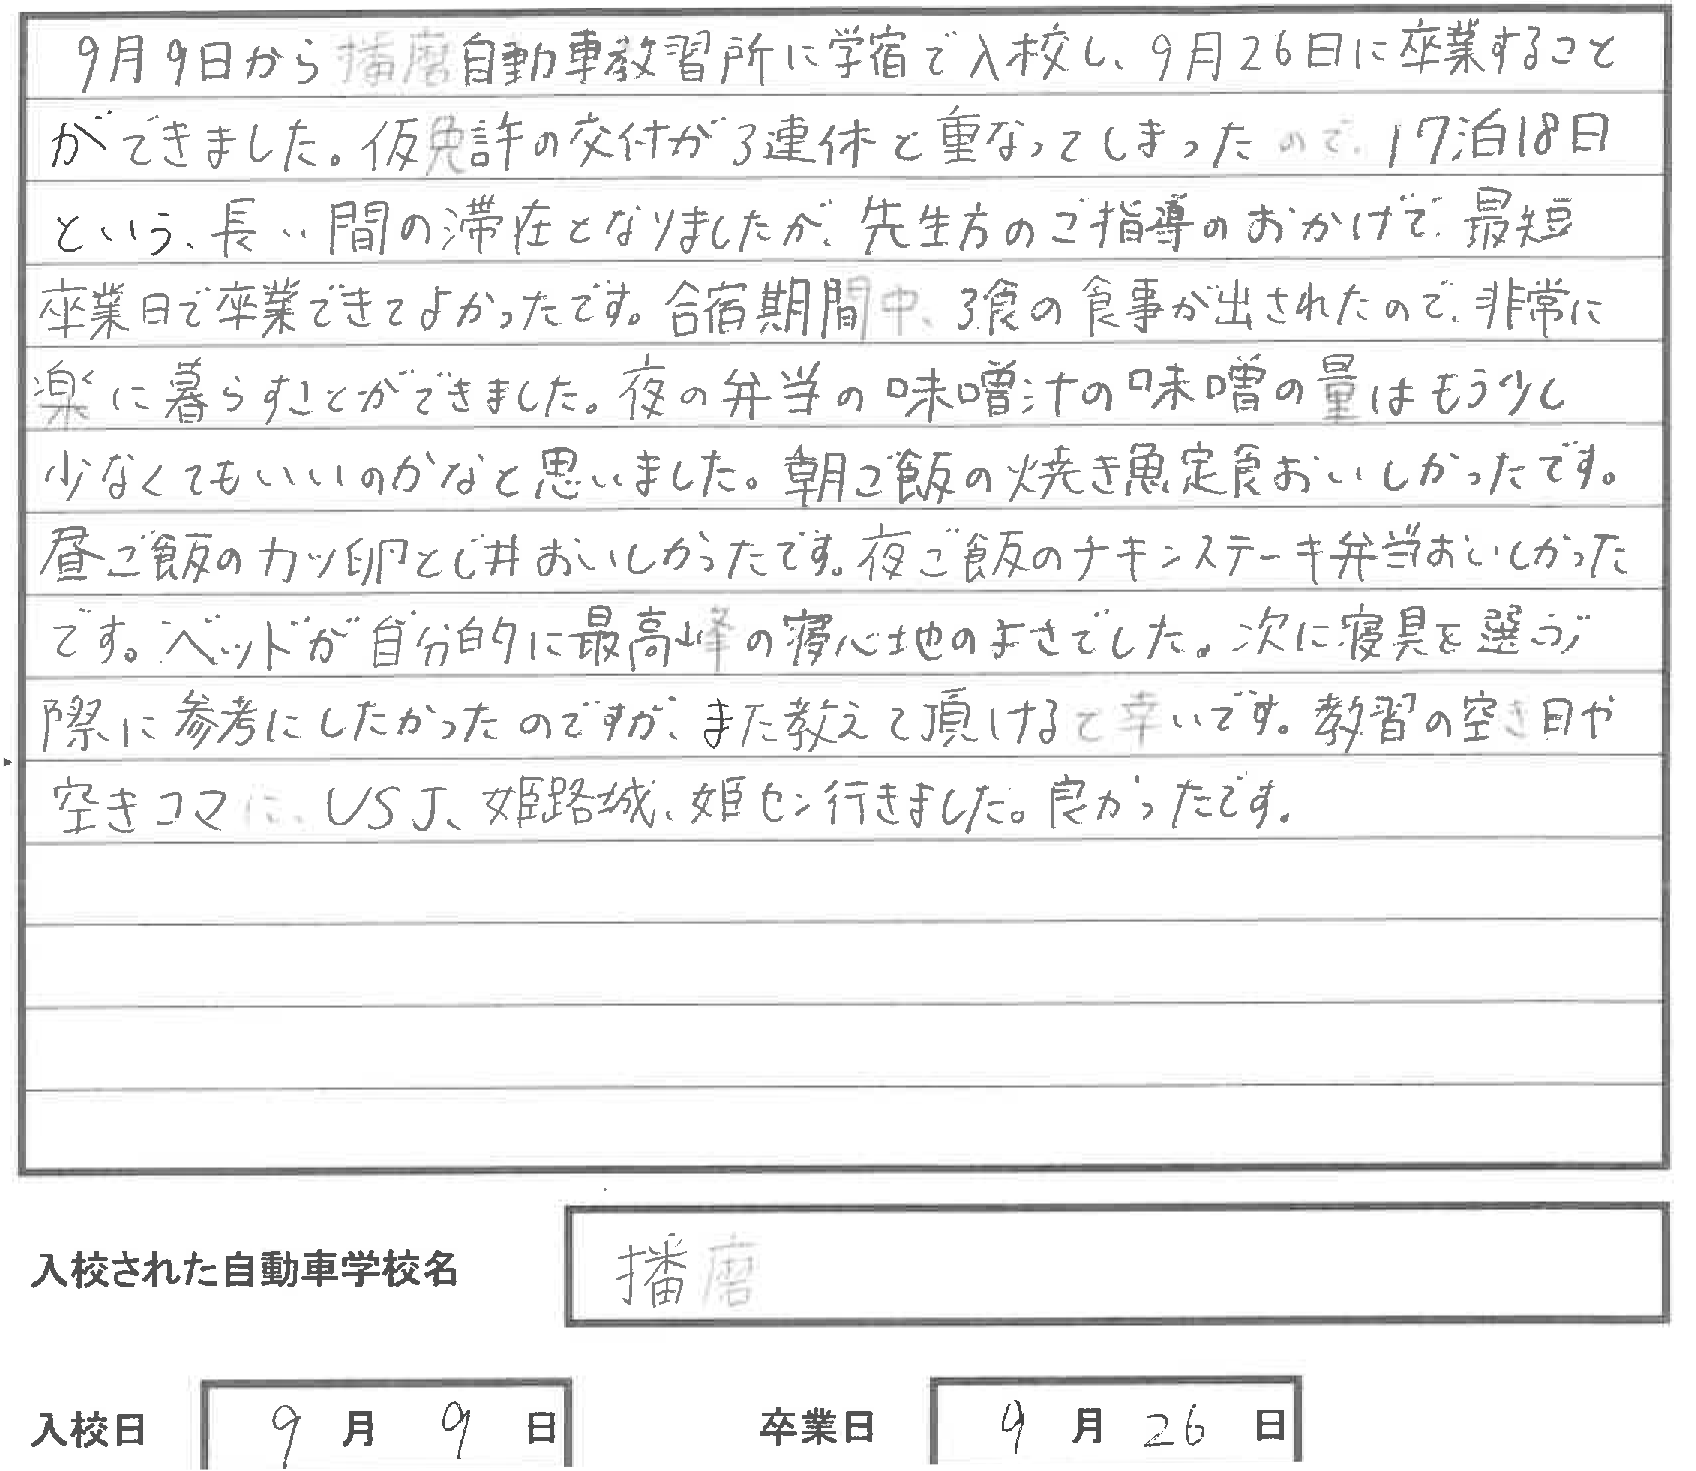 9月9日から播磨自動車教習所に学宿で入校し、9月26日に卒業すること
ができました。仮免許の交付が3連休と重なってしまったので、17泊18日
という、長い間の滞在となりましたが、先生方のご指導のおかげで、最短
卒業日で卒業できてよかったです。合宿期間中、3食の食事が出されたので、非常に
楽に暮らすことができました。夜の弁当の味噌汁の味噌の量はもう少し
少なくてもいいのかなと思いました。朝ご飯の焼き魚定食おいしかったです。
昼ご飯のカツ卵とじ丼おいしかったです。夜ご飯のチキンステーキ弁当おいしかった
です。ベッドが自分的に最高峰の寝心地のよさでした。次に寝具を選ぶ
際に参考にしたかったのですが、また教えて頂けると幸いです。教習の空き日や
空きコマに、USJ、姫路城、姫セン行きました。良かったです。
入校された自動車学校名 播磨
入校日 9月9日 卒業日 9月26日